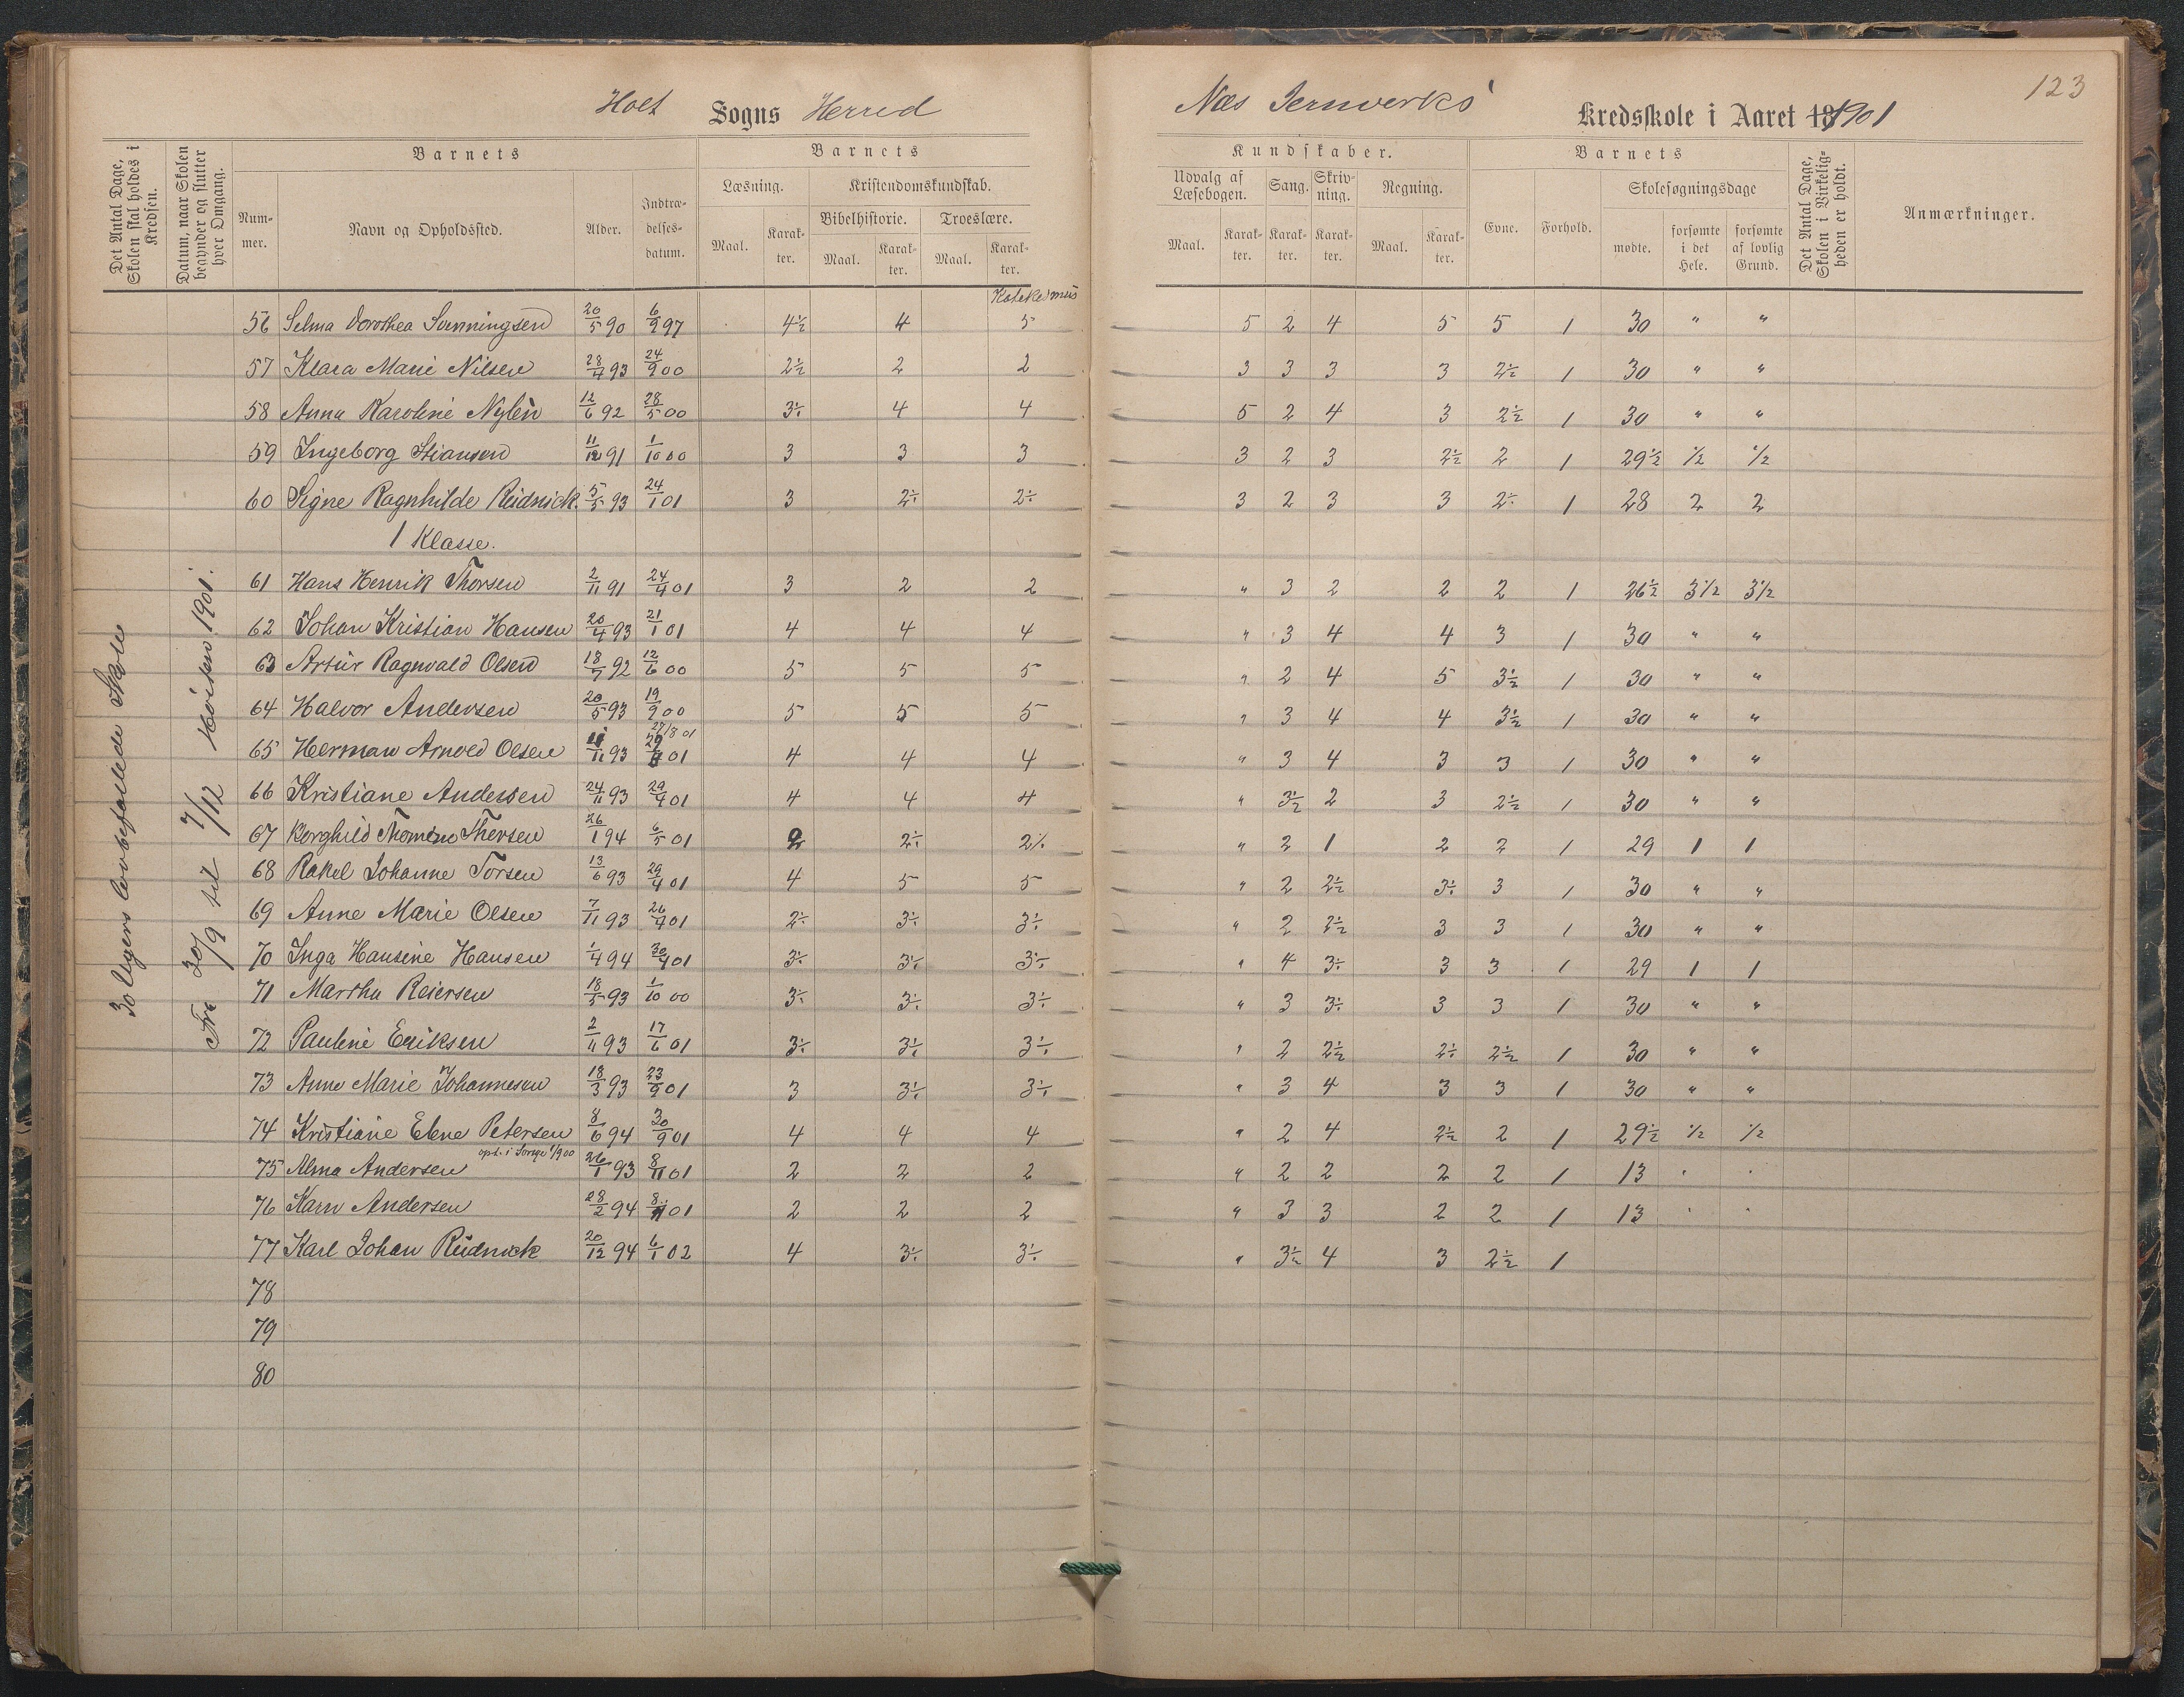 123
Holt Sogns Herred Næs Jernverks' Kredsskole i Aaret 18 1901
Det Antal Dage, Skolen skal holdes i Kredsen.
Datum, naar Skolen begynder og slutter hver Omgang.
Barnets
Nummer. Navn og Opholdssted. Alder. Indtrædelsesdatum.
Barnets
Læsning. Kristendomskundskab.
Bibelhistorie. Troeslære.
Maal. Karakter. Maal. Karakter. Maal. Karakter.
Katekismus
Kundskaber.
Udvalg af Læsebogen. Sang. Skrivning. Regning.
Maal. Karakter. Karakter. Karakter. Maal. Karakter.
Barnets
Evne. Forhold. Skolesøgningsdage
mødte. forsømte i det Hele. forsømte af lovlig Grund.
Det Antal Dage, Skolen i Virkeligheden er holdt.
Anmærkninger.
30 Ugers lovbefalede Skole
Fra 30/9 til 7/12 Høsten 1901.
56 Selma Dorothea Sunningsen 20/5 90 6/9 97 4½ 4 5 5 2 4 5 5 1 30 " "
57 Klara Marie Nilsen 28/4 93 24/9 00 2½ 2 2 3 3 3 3 2½ 1 30 " "
58 Anna Karoline Nylén 12/6 92 28/5 00 3÷ 4 4 5 2 4 3 2½ 1 30 " "
59 Ingeborg Stiansen 11/12 91 1/10 00 3 3 3 3 2 3 2½ 2 1 29½ ½ ½
60 Signe Ragnhilde Reidnick. 5/5 93 24/1 01 3 2÷ 2÷ 3 2 3 3 2÷ 1 28 2 2
1 Klasse.
61 Hans Henrik Thorsen 2/11 91 24/4 01 3 2 2 " 3 2 2 2 1 26½ 3½ 3½
62 Johan Kristian Hansen 20/4 93 21/1 01 4 4 4 " 3 4 4 3 1 30 " "
63 Artur Ragnvald Olsen 18/7 92 12/6 00 5 5 5 " 2 4 5 3½ 1 30 " "
64 Halvor Andersen 20/5 93 19/9 00 5 5 5 " 3 4 4 3½ 1 30 " "
27/8 01
65 Herman Arnold Olsen 93 01 4 4 4 " 3 4 3 3 1 30 " "
66 Kristiane Andersen 24/11 93 29/4 01 4 4 4 " 3½ 2 3 2½ 1 30 " "
67 Borghild Thorsen 26/1 94 6/5 01 2 2÷ 2÷ " 2 1 2 2 1 29 1 1
68 Rakel Johanne Torsen 13/6 93 29/4 01 4 5 5 " 2 2½ 3÷ 3 1 30 " "
69 Anne Marie Olsen 7/11 93 26/4 01 2÷ 3÷ 3÷ " 2 2½ 3 3 1 30 " "
70 Inga Hansine Hansen 1/4 94 30/4 01 3÷ 3÷ 3÷ " 4 3÷ 3 3 1 29 1 1
71 Martha Reiersen 18/5 93 1/10 00 3÷ 3÷ 3÷ " 3 3÷ 3 3 1 30 " "
72 Pauline Eriksen 2/11 93 17/6 01 3÷ 3÷ 3÷ " 2 2½ 2÷ 2½ 1 30 " "
73 Anne Marie Johannesen 18/3 93 23/9 01 3 3÷ 3÷ " 3 4 3 3 1 30 " "
74 Kristiane Elene Petersen 8/6 94 30/9 01 4 4 4 " 2 4 2½ 2 1 29½ ½ ½
75 Alma Andersen 26/1 93 8/11 01 2 2 2 " 2 2 2 2 1 13 " "
76 Karn Andersen 28/2 94 8/11 01 2 2 2 " 3 3 2 2 1 13 " "
77 Karl Johan Reidnick 20/12 94 6/1 02 4 3÷ 3÷ " 3½ 4 3 2½ 1
78
79
80